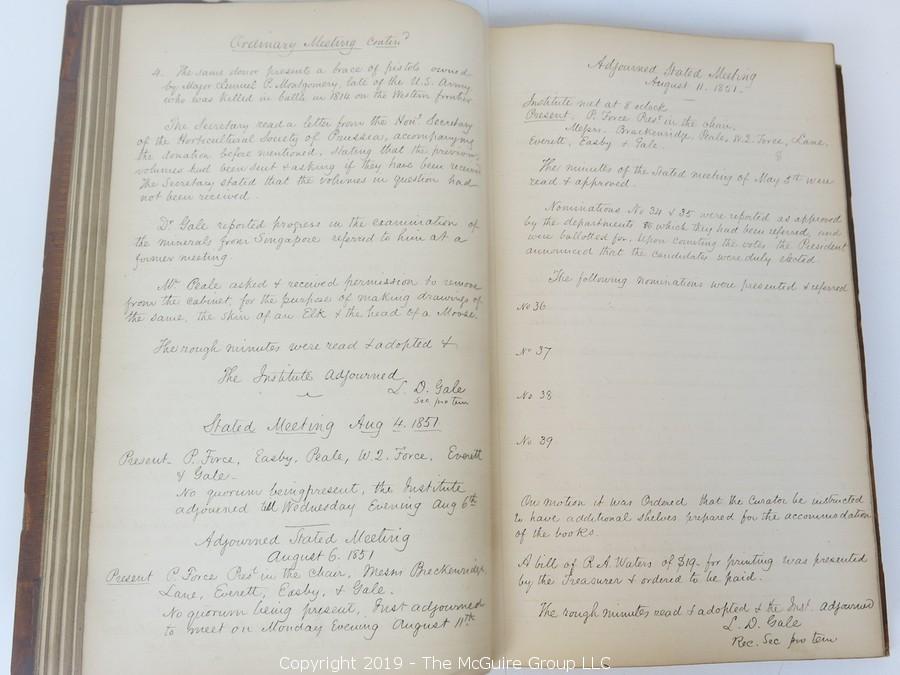 Ordinary Meeting Contind
4. The same donor present a brace of pistols owned
by Major Lemuel P. Montgomery, late of the U.S. Army,
who was killed in battle in 1814 on the Western frontier.
The Secretary read a letter from the Hon.y Secretary
of the Horticultural Society of Prussia, accompanying
the donation before mentioned, stating that the previous
volumes had been sent & asking if they have been received
The Secretary stated that the volumes in question had
not been received.
Dr. Gale reported progress in the examination of
the minerals from Singapore referred to him at a
former meeting.
Mr. Peale asked & received permission to remove
from the cabinet, for the purpose of making drawings of
the same, the skin of an Elk & the head of a Moose.
The rough minutes were read & adopted &
The Institute Adjourned
L. D. Gale
Sec pro tem
Stated Meeting Aug 4. 1851
Present_ P. Force, Easby, Peale, W.Q. Force, Everett
& Gale_
No quorum being present, the Institute
adjourned till Wednesday Evening Aug 6th
Adjourned Stated Meeting
August 6. 1851
Present P. Force Pres.t in the Chair, Messrs Breckenridge,
Lane, Everett, Easby, & Gale.
No quorum being present, Inst adjourned
to meet on Monday Evening August 11th.
Adjourned Stated Meeting
August 11. 1851.
Institute met at 8 o'clock
Present, P. Force Prest in the chair,
Messrs. Brackenridge, Peale, W.Q. Force, Lane,
Everett, Easby & Gale.
8
The minutes of the Stated meeting of May 5th were
read & approved.
Nominations No 34 & 35 were reported as approved
by the departments to which they had been referred, and
were ballotted for. Upon counting the votes the President
announced that the candidates were duly elected
The following nominations were presented & referred
No 36
No 37
No 38
No 39
On motion it was Ordered that the Curator be instructed
to have additional shelves prepared for the accommodation
of the books.
A bill of R.A. Waters of $19. for printing was presented
by the Treasurer & ordered to be paid.
The rough minutes read & adopted & the Inst. adjourned
L. D. Gale
Rec. Sec pro tem
Copyright 2019 - The McGuire Group LLC